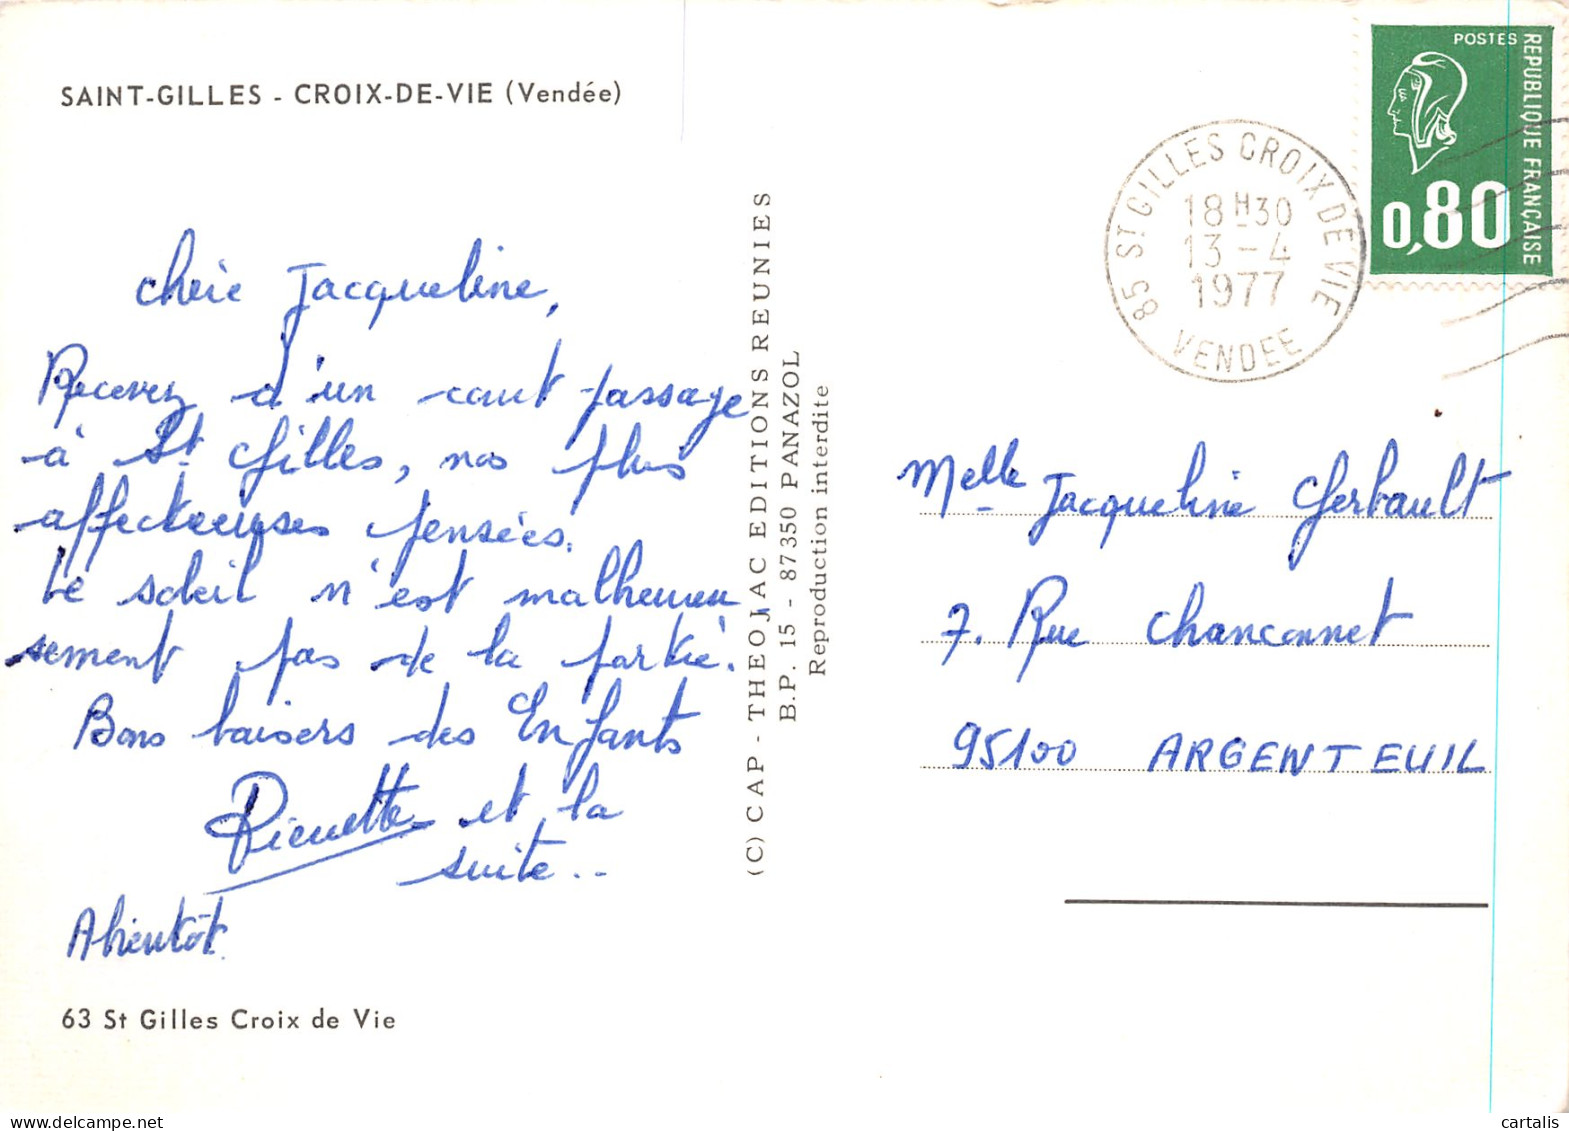 SAINT-GILLES - CROIX-DE-VIE (Vendée)
chère Jacqueline,
Recevez d'un court passage
à St Gilles, nos plus
affectueuses pensées.
Le soleil n'est malheureu
sement pas de la partie.
Bons baisers des Enfants
Pierrette et la
suite..
A bientôt.
63 St Gilles Croix de Vie
(C) CAP - THEOJAC EDITIONS REUNIES
B.P. 15 - 87350 PANAZOL
Reproduction interdite
POSTES
REPUBLIQUE FRANÇAISE
0,80
85 ST GILLES CROIX DE VIE
18H30
13-4
1977
VENDEE
Melle Jacqueline Gerbault
7. Rue Chanconnet
95100 ARGENTEUIL
cartalis